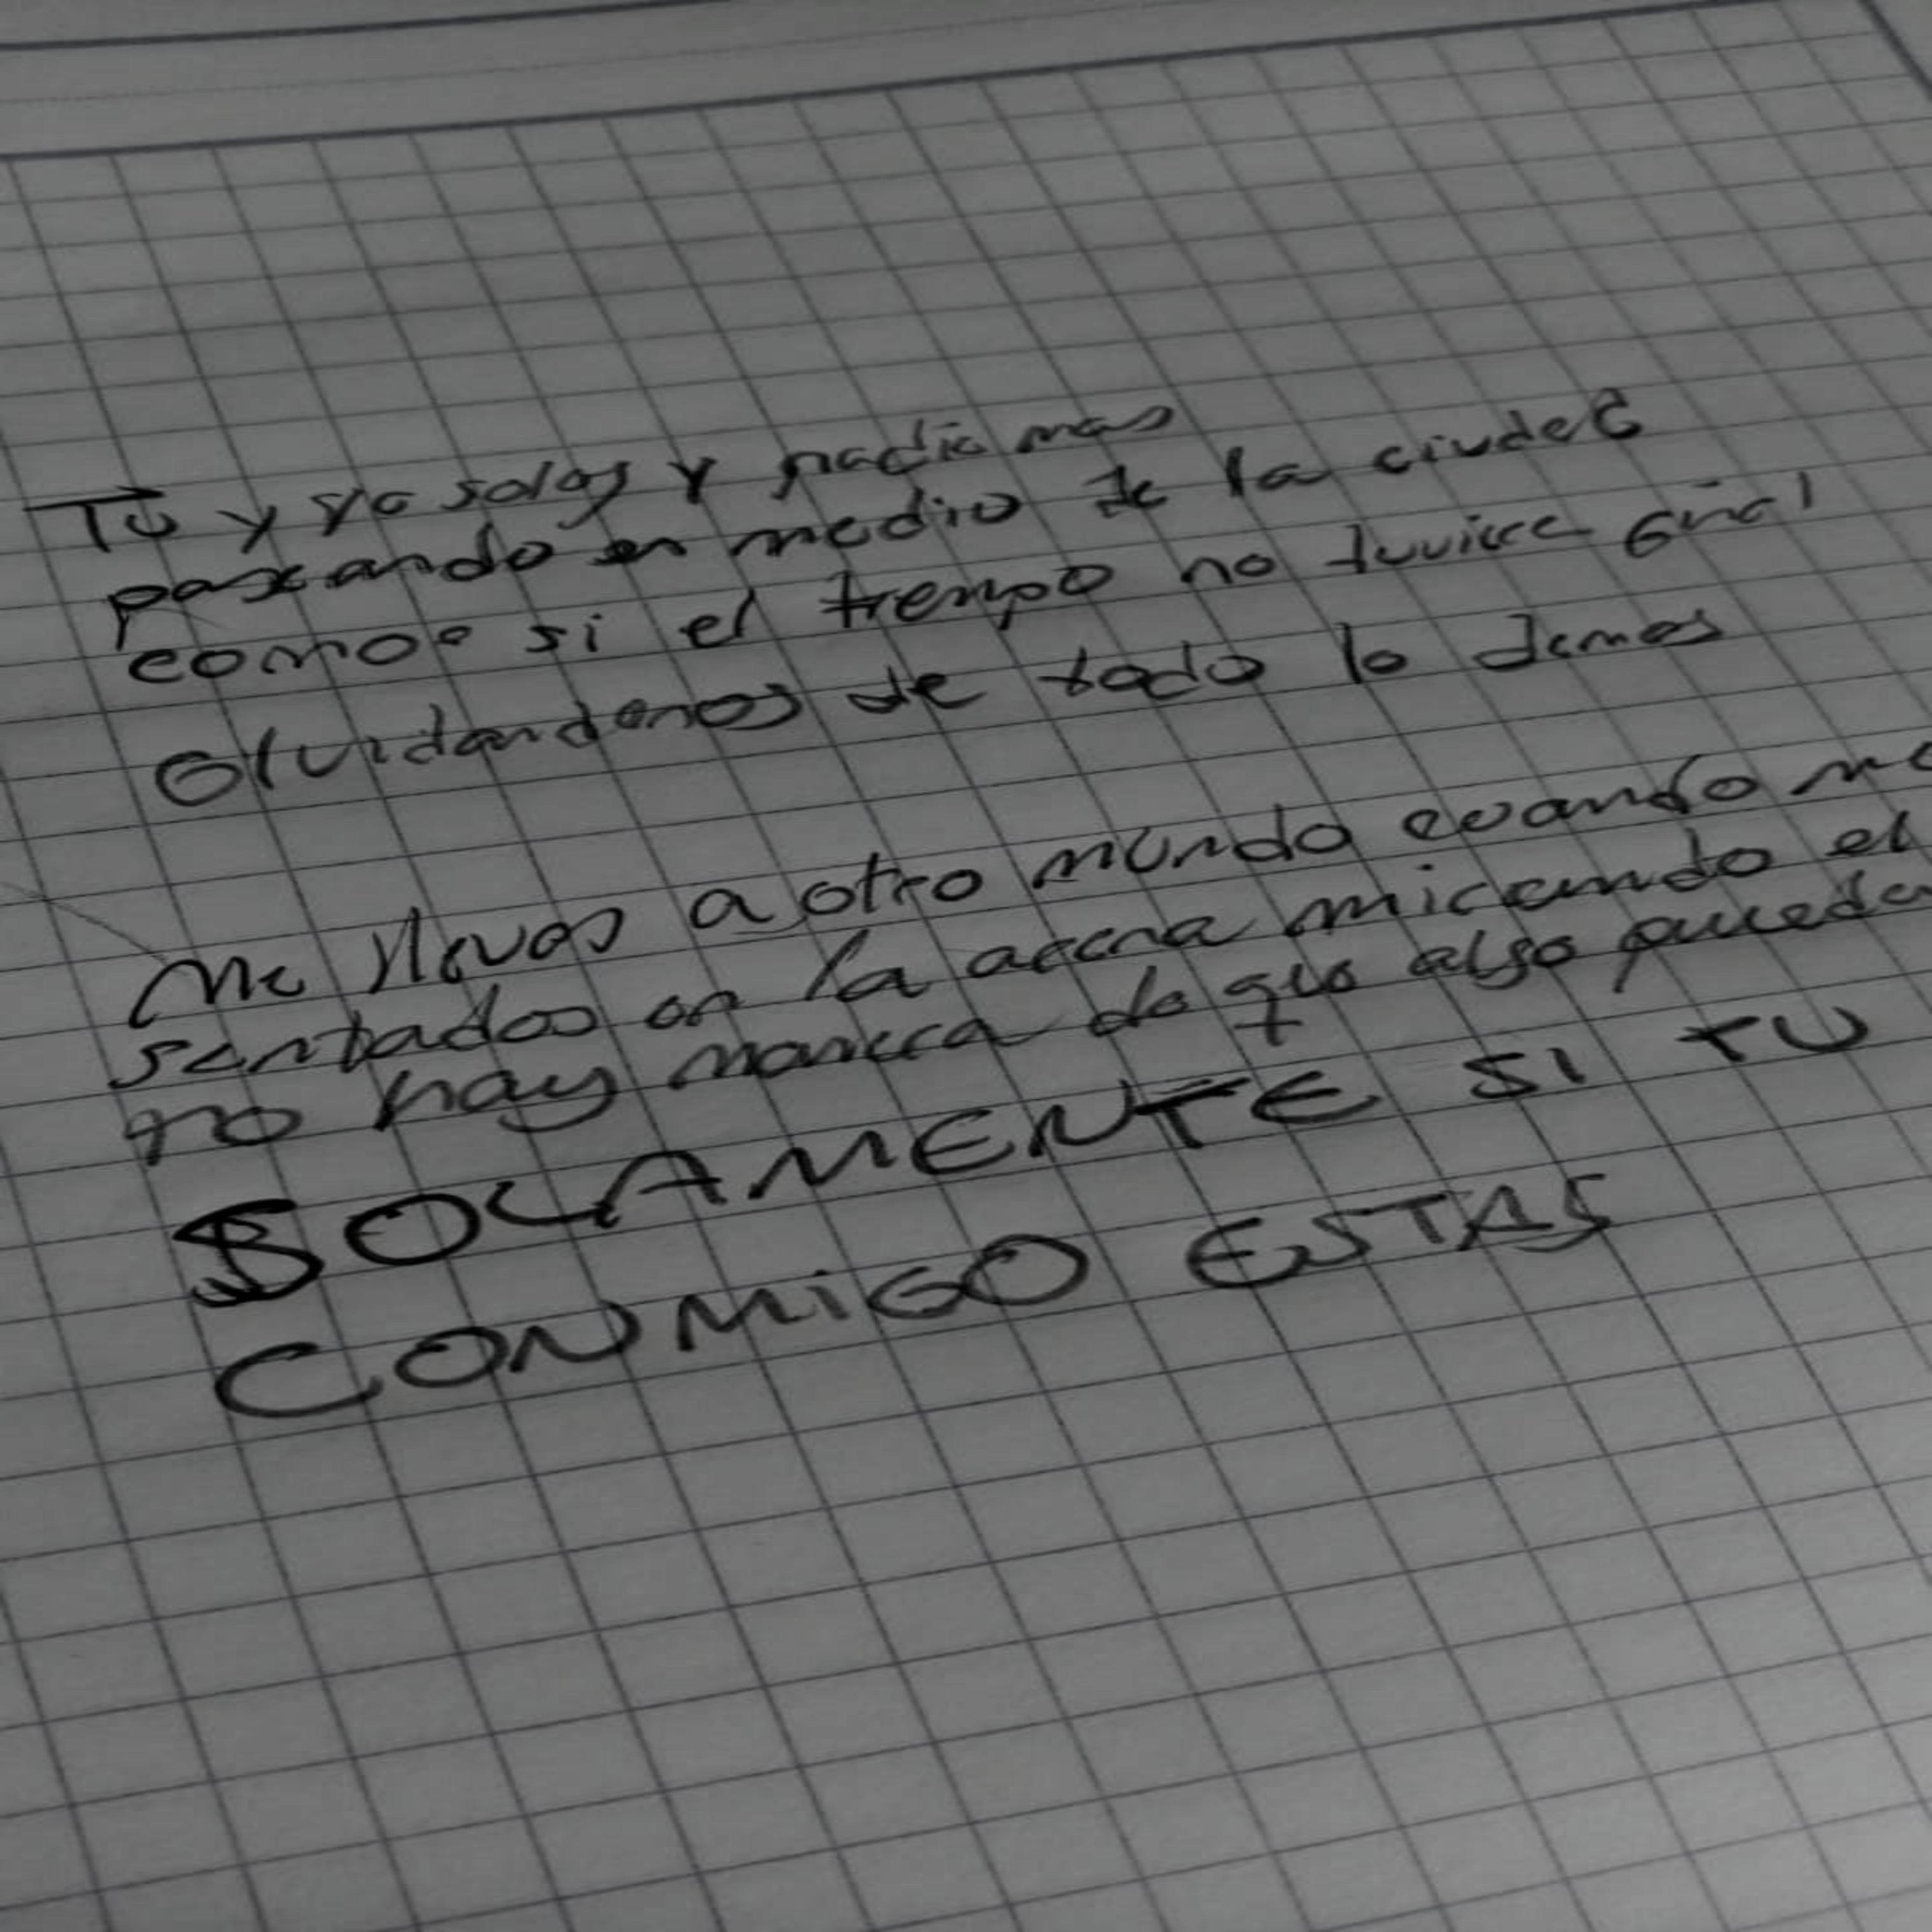 Tu y yo solos y nadie mas
paseando en medio de la ciudad
como si el tiempo no tuviera final
Olvidandonos de todo lo demas
Me llevas a otro mundo cuando
sentados en la acera mirando el
no hay manera de que algo pueda
SOLAMENTE SI TU
CONMIGO ESTAS